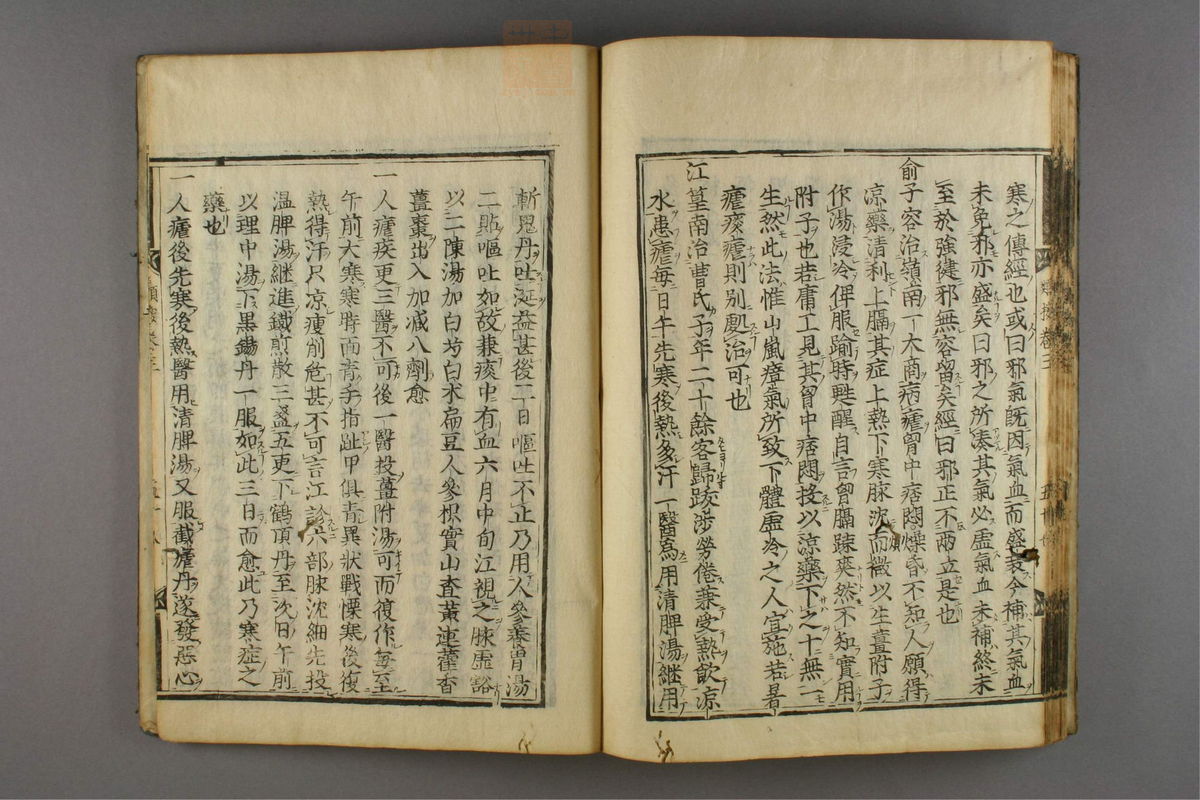 寒之傳經也或曰邪氣既因氣血而盛衰今補其氣血
未免邪亦盛矣曰邪之所湊其氣必虛氣血未補終未
至於強健邪無容留矣經曰邪正不兩立是也
俞子容治嶺南一大商病瘧胷中痞悶煩昏不知人願得
凉藥清利上膈其症上熱下寒脉沈而微以生薑附子
作湯浸冷俾服踰時甦醒自言胷膈疎爽然不知實用
附子也若庸工見其胷中痞悶投以凉藥下之十無一
生然此法惟山嵐瘴氣所致下體虛冷之人宜施若暑
瘧痰瘧則別處治可也
江篁南治曹氏子年二十餘客歸跋涉勞倦兼受熱飲凉
水患瘧每日午先寒後熱多汗一醫爲用清脾湯繼用
斬鬼丹吐涎益甚後二日嘔吐不止乃用人參養胃湯
二貼嘔吐如故兼痰中有血六月中旬江視之脉虛豁
以二陳湯加白芍白朮扁豆人參枳實山查黃連藿香
薑棗出入加减八劑愈
一人瘧疾更三醫不可後一醫投薑附湯可而復作每至
午前大寒寒時面青手指趾甲俱青異狀戰慄寒後復
熱得汗只凉瘦削危甚不可言江診六部脉沈細先投
温脾湯繼進鐵煎散三盞五更下鶴頂丹至次日午前
以理中湯下黑錫丹一服如此三日而愈此乃寒症之
藥也
一人瘧後先寒後熱醫用清脾湯又服截瘧丹遂發惡心